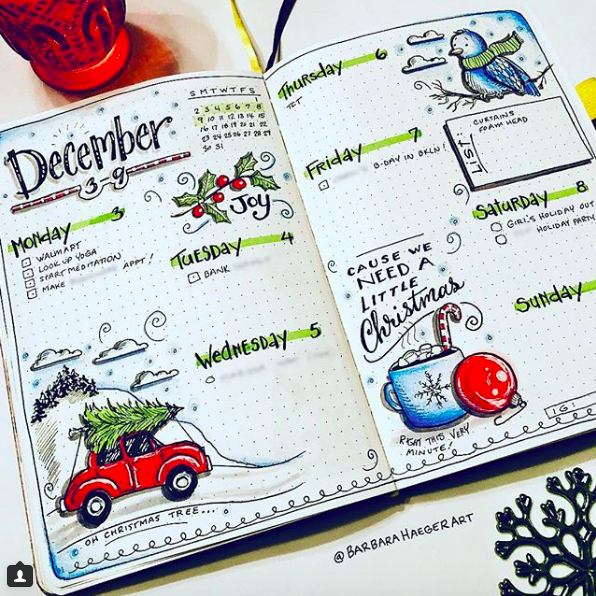 December
3-9
S M T W T F S
1
2 3 4 5 6 7 8
9 10 11 12 13 14 15
16 17 18 19 20 21 22
23 24 25 26 27 28 29
30 31
Joy
Monday 3
WALMART
LOOK UP YOGA
START MEDITATION
MAKE APPT!
TUESDAY 4
BANK
WEDNESDAY 5
OH CHRISTMAS TREE...
THURSDAY 6
FRIDAY 7
B-DAY IN BKLN!
LIST:
CURTAINS
FOAM HEAD
SATURDAY 8
GIRL'S HOLIDAY OUT
HOLIDAY PARTY
SUNDAY
CAUSE WE
NEED A
LITTLE
Christmas
RIGHT THIS VERY
MINUTE!
161
@BARBARAHAEGERART